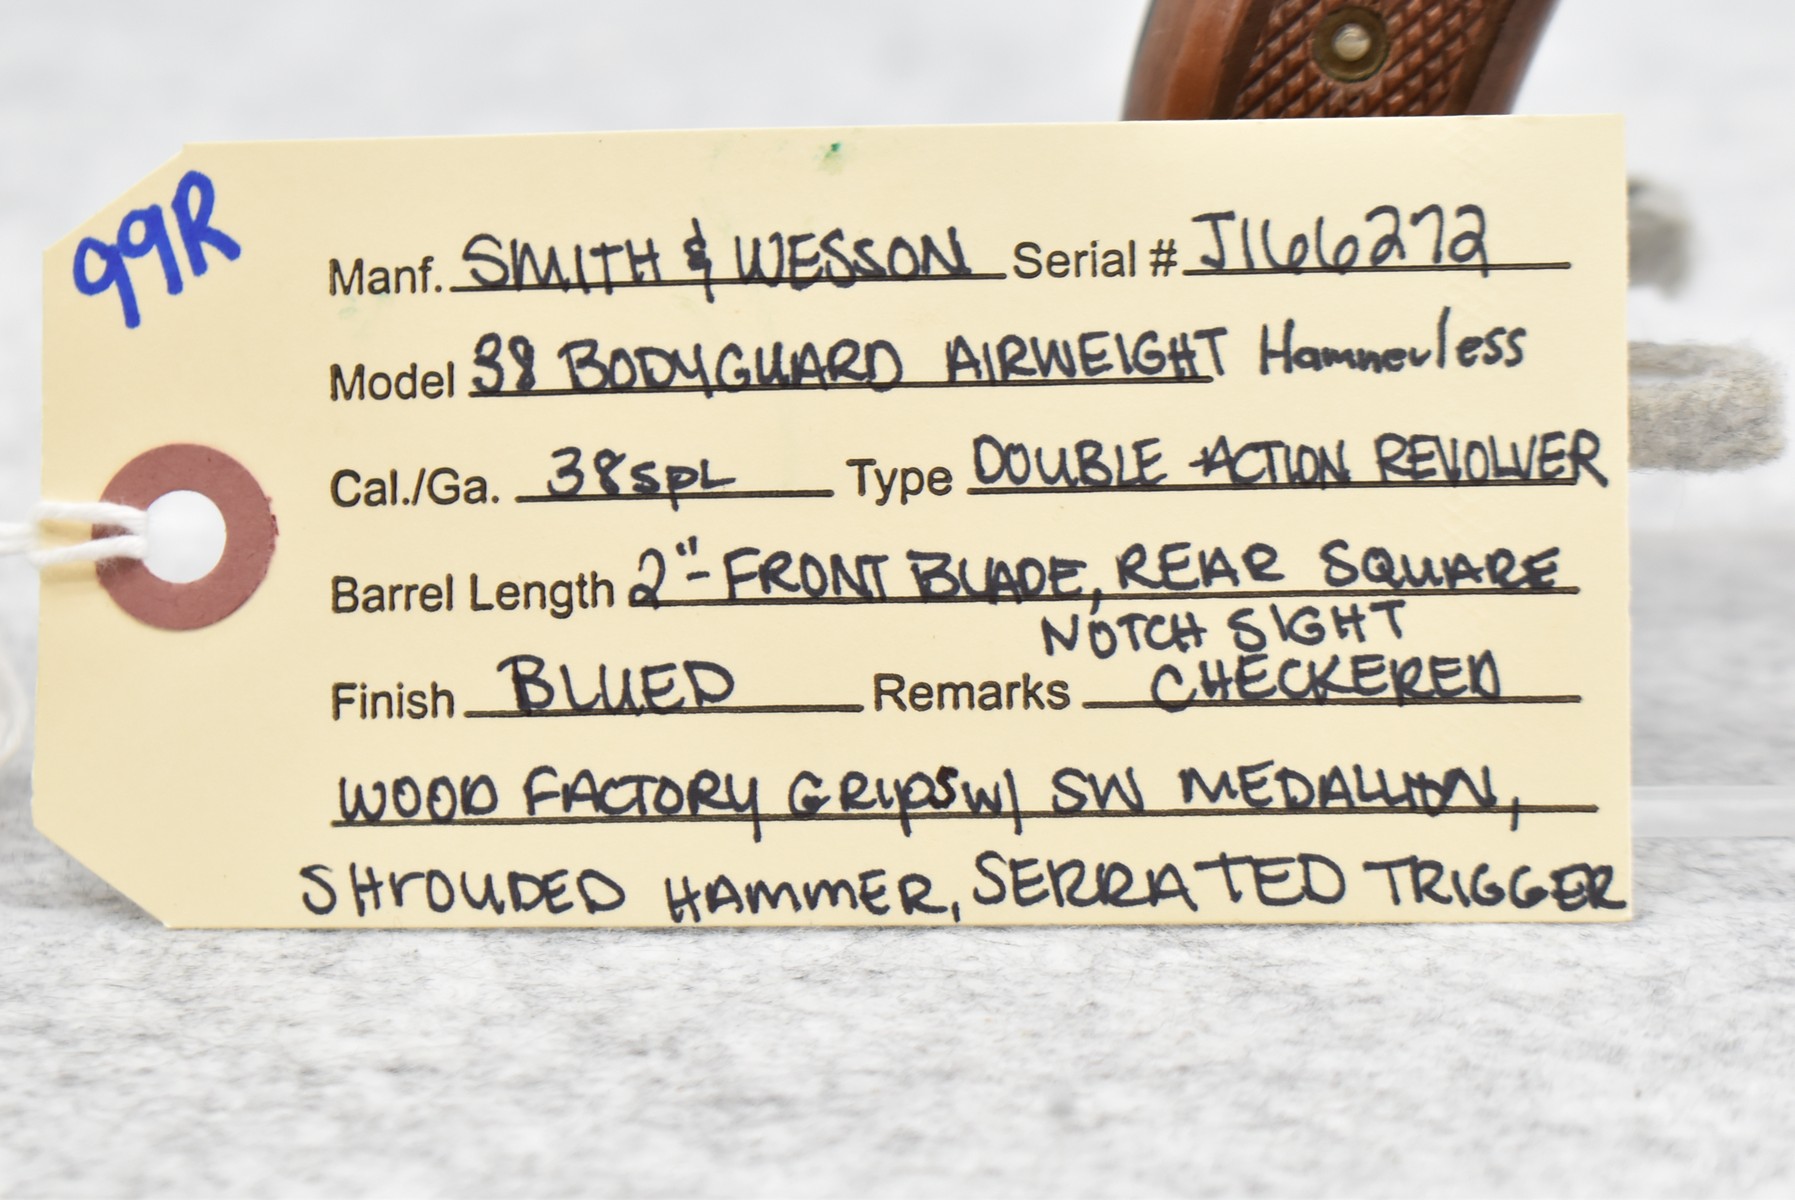 99R
Manf. SMITH & WESSON Serial # J166272
Model 38 BODYGUARD AIRWEIGHT Hammerless
Cal./Ga. 38SPL Type DOUBLE ACTION REVOLVER
Barrel Length 2"- FRONT BLADE, REAR SQUARE
NOTCH SIGHT
Finish BLUED Remarks CHECKERED
WOOD FACTORY GRIPS W/ SW MEDALLION,
SHROUDED HAMMER, SERRATED TRIGGER